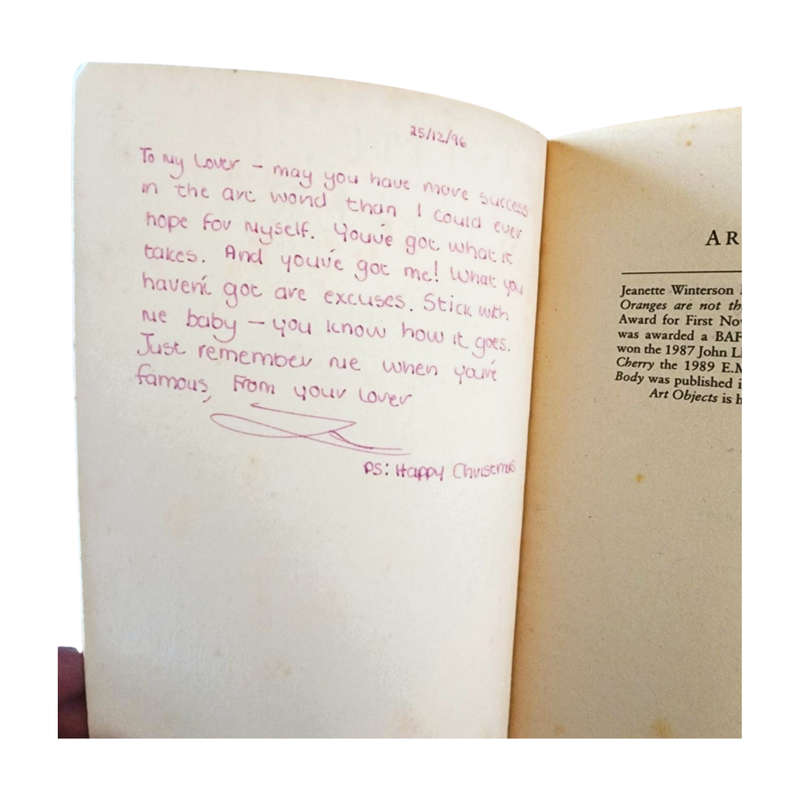 25/12/96
To My Lover – may you have more success
in the art world than I could ever
hope for Myself. You've got what it
takes. And you've got me! What you
haven't got are excuses. Stick with
me baby – you know how it goes.
Just remember me when you're
famous, From your lover
PS: Happy Christmas
AR
Jeanette Winterson
Oranges are not th
Award for First Nov
was awarded a BAF
won the 1987 John Ll
Cherry the 1989 E.M
Body was published i
Art Objects is h